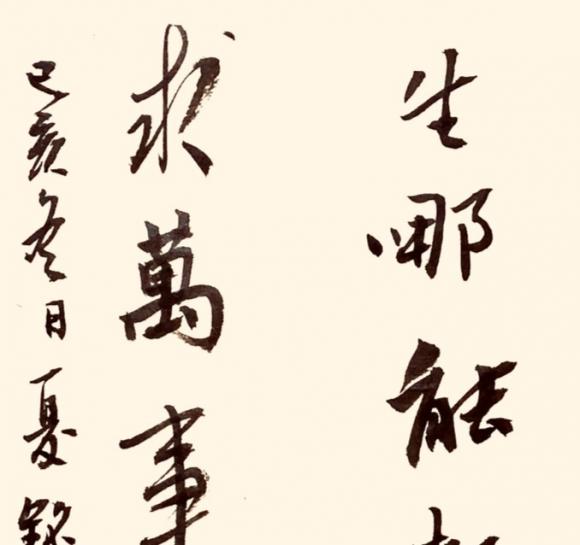 生哪能
求萬事
己亥冬日夏